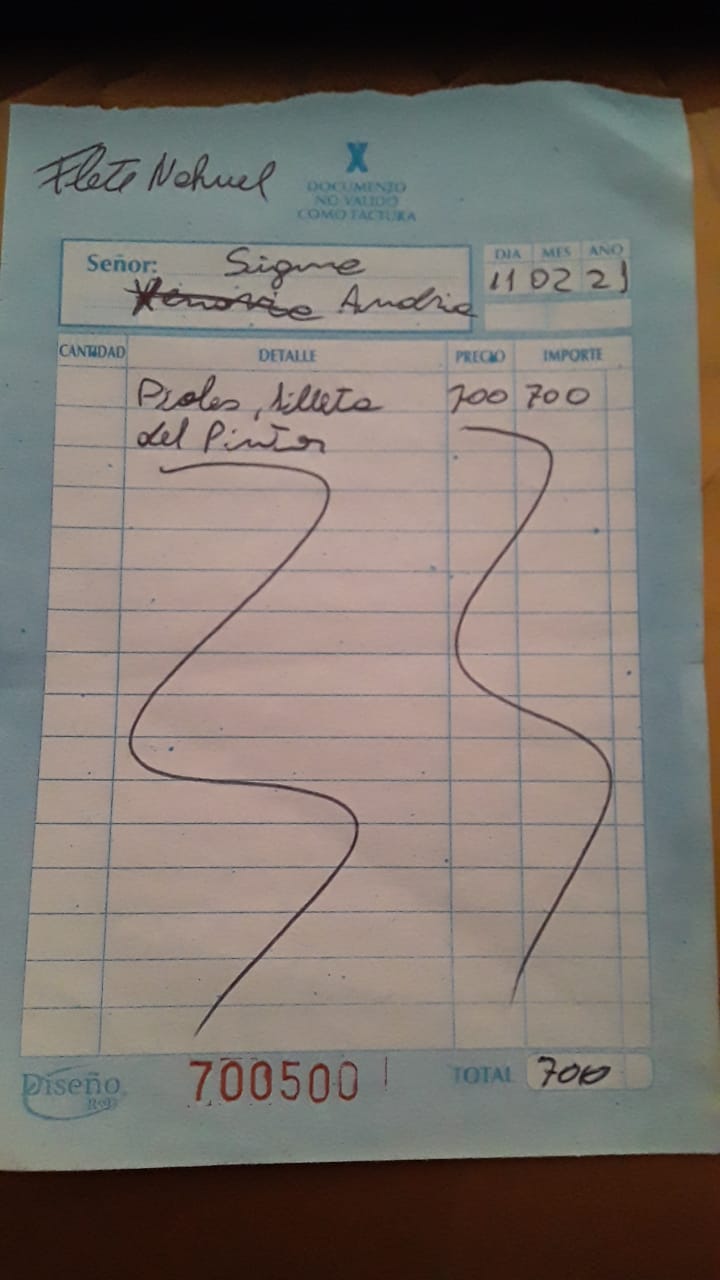 Flete Nahuel
X
DOCUMENTO
NO VALIDO
COMO FACTURA
Señor: Sigme
Andrea
DIA MES AÑO
11 02 21
CANTIDAD DETALLE PRECIO IMPORTE
Piolas, silleta 700 700
del Pintor
Diseño
700500
TOTAL 700